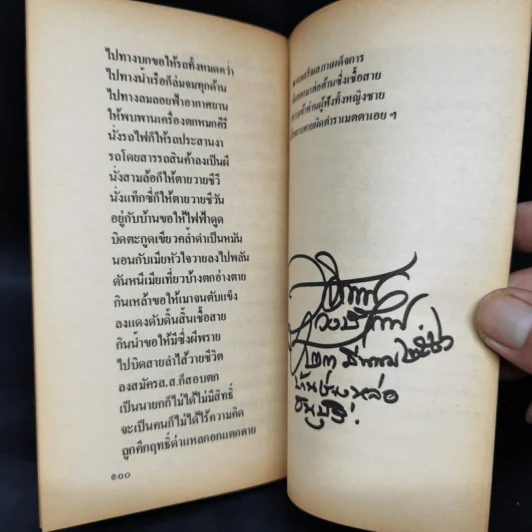 ไปทางบกขอให้รถทั้งหมดคว่ำ
ไปทางน้ำเรือก็ล่มจมทุกด้าน
ไปทางลมลอยฟ้าอากาศยาน
ให้พบพานเครื่องตกหมกคีรี
นั่งรถไฟก็ให้รถประสานงา
รถโดยสารรถสินค้าลงเป็นผี
นั่งสามล้อก็ให้ตายวายชีวี
นั่งแท็กซี่ก็ให้ตายวายชีวัน
อยู่กับบ้านขอให้ไฟฟ้าดูด
บิดตะกูดเขียวคล้ำดำเป็นหมัน
นอนกับเมียหัวใจวายลงไปพลัน
ดันหนีเมียเที่ยวบ้างตกอ่างตาย
กินเหล้าขอให้เมาจนตับแข็ง
ลงแดงดับดิ้นสิ้นเชื้อสาย
กินน้ำขอให้มีซึ่งผีพราย
ไปบิดสายลำไส้วายชีวิต
ลงสมัครส.ส.ก็สอบตก
เป็นนายกก็ไม่ได้ไม่มีสิทธิ์
จะเป็นคนก็ไม่ได้ไร้ความคิด
ถูกคึกฤทธิ์ด่าแหลกอกแตกตาย
๑๐๐
ภาผเด็จการ
ต่อต้านซึ่งเชื้อสาย
ท่านผู้ฟังทั้งหญิงชาย
ผิดตำราเมตตาเอย ฯ